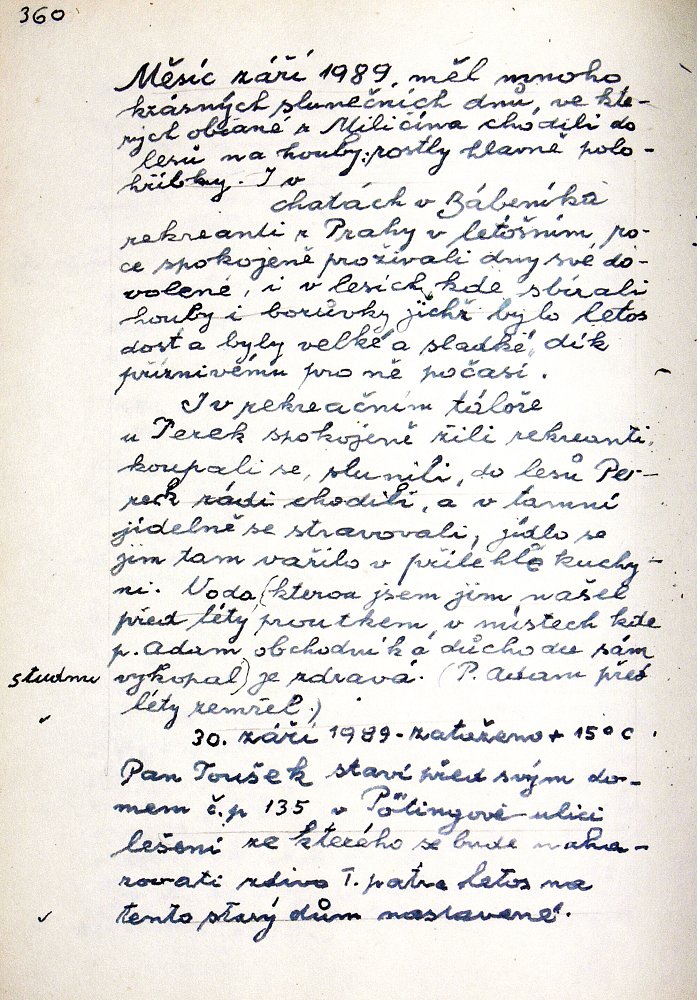 360
Měsíc září 1989, měl mnoho
krásných slunečních dnů, ve kte-
rých občané z Miličína chodili do
lesů na houby: rostly hlavně polo-
hřibky. I v
chatách v Bábeníka
rekreanti z Prahy v letošním ro-
ce spokojeně prožívali dny své do-
volené, i v lesích kde sbírali
houby i borůvky jichž bylo letos
dost a byly velké a sladké, dík
příznivému pro ně počasí.
I v rekreačním táboře
u Perek spokojeně žili rekreanti,
koupali se, slunili, do lesů Per-
rek rádi chodili, a v tamní
jídelně se stravovali, jídlo se
jim tam vařilo v přilehlé kuchy-
ni. Voda, (kterou jsem jim našel
před léty proutkem, v místech kde
p. Adam obchodník á důchodu sám
studnu vykopal) je zdravá. (P. Adam před
léty zemřel.)
30. září 1989 - zataženo + 15° C.
Pan Toušek staví před svým do-
mem č.p 135 v Pötingově ulici
lešení ze kterého se bude
zdivo I. patra letos na
tento starý dům nastavené.